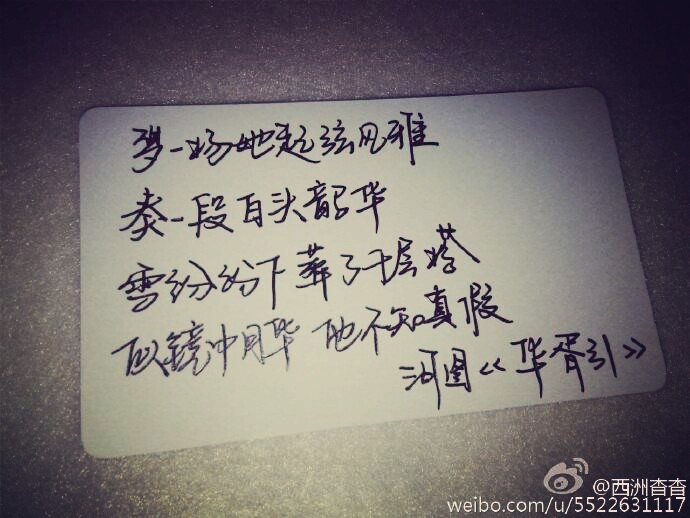 梦一场她起弦风雅
奏一段白头韶华
雪纷纷下葬了千层塔
似镜中月华 他不知真假
河图《华胥引》
@西洲杳杳
weibo.com/u/5522631117